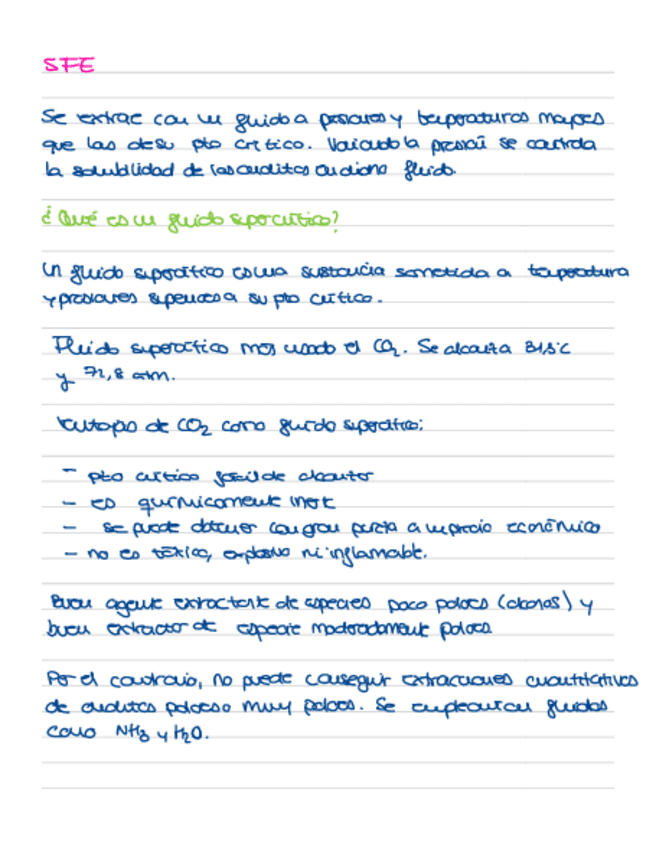 SFE
Se extrae con un fluido a presiones y temperaturas mayores
que las de su pto crítico. Variando la presión se controla
la solubilidad de los analitos en dicho fluido.
¿Qué es un fluido supercrítico?
Un fluido supercrítico es una sustancia sometida a temperatura
y presiones superiores a su pto crítico.
Fluido supercrítico más usado el CO2. Se alcanza 31,3°C
y 72,8 atm.
Ventajas de CO2 como fluido supercrítico:
- pto crítico fácil de alcanzar
- es químicamente inerte
- se puede obtener con gran pureza a un precio económico
- no es tóxico, explosivo ni inflamable.
Buen agente extractante de especies poco polares (alcanos) y
buen extractor de especies moderadamente polares
Por el contrario, no puede conseguir extracciones cuantitativas
de analitos polares o muy polares. Se emplearían fluidos
como NH3 y H2O.